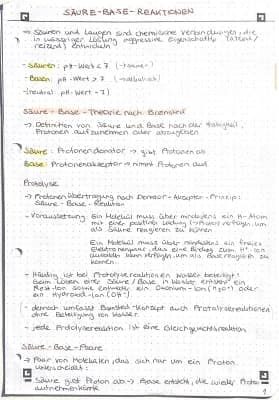 SÄURE-BASE-REAKTIONEN
→ Säuren und Laugen sind chemische Verbindungen, die
in wässriger Lösung aggressive Eigenschaften (ätzend/
reizend) entwickeln
- Säuren: pH-Wert < 7 (→ sauer)
- Basen: pH-Wert > 7 (→ alkalisch)
(neutral: pH-Wert = 7)
Säure-Base-Theorie nach Brønsted
→ Definition von Säure und Base nach der Fähigkeit,
Protonen aufzunehmen oder abzugeben
Säure: Protonendonator → gibt Protonen ab
Base: Protonenakzeptor → nimmt Protonen auf
Protolyse
→ Protonenübertragung nach Donator-Akzeptor-Prinzip:
Säure-Base-Reaktion
- Voraussetzung: Ein Molekül muss über mindestens ein H-Atom
mit einer positiven Ladung verfügen, um
als Säure reagieren zu können
Ein Molekül muss über mindestens ein freies
Elektronenpaar, das eine Bindung zum H⁺-Ion
verfügen, um als Base reagieren zu
können.
- Häufig ist bei Protolysereaktionen Wasser beteiligt.
Beim Lösen einer Säure/Base in Wasser entsteht ein
Rest-Ion sowie entweder ein Oxonium-Ion (H₃O⁺) oder
ein Hydroxid-Ion (OH⁻).
- demnach umfasst Brønsted-Konzept auch Protolysereaktionen
ohne Beteiligung von Wasser.
- jede Protolysereaktion ist eine Gleichgewichtsreaktion
Säure-Base-Paare
→ Paar von Molekülen, das sich nur um ein Proton
unterscheidet:
Säure gibt Proton ab → Base entsteht, die wieder Proton
aufnehmen könnte
1